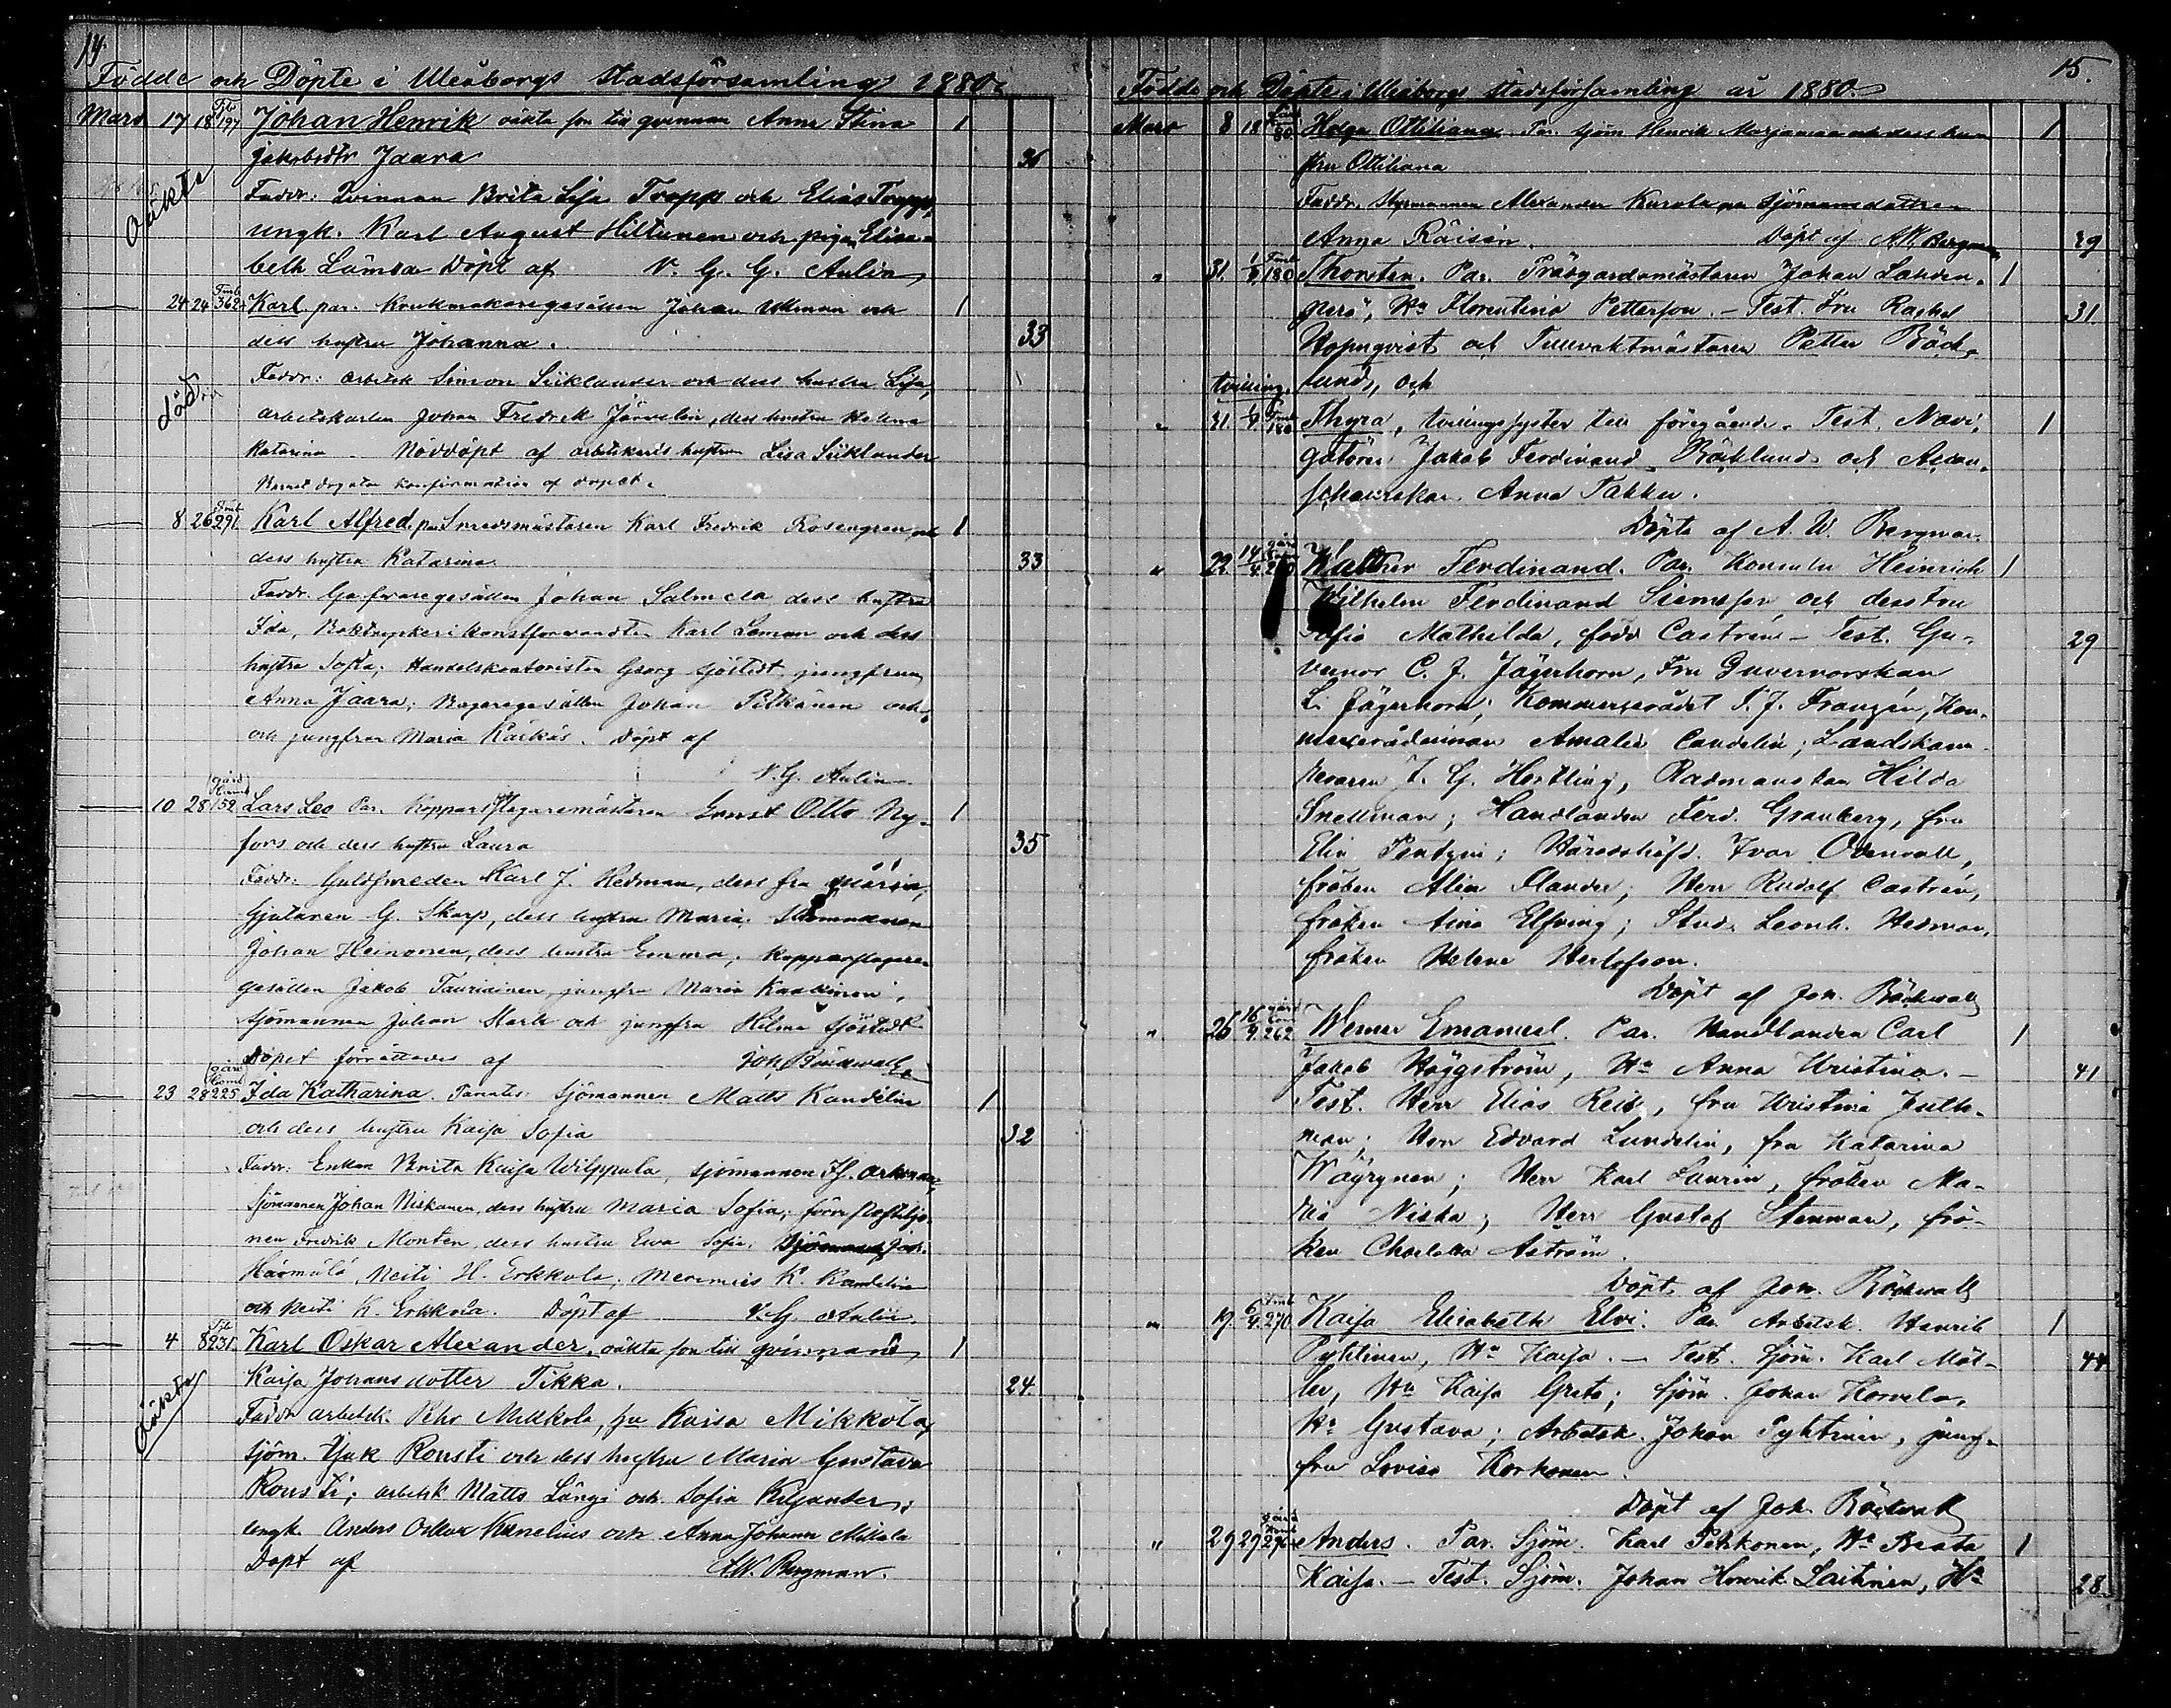 14.
Födde och Döpte i Uleåborgs stadsförsamling 1880.
Mars 17 18 197 Johan Henrik oäkta son till qvinnan Anna Stina 1
Jakobsdtr Jaara 36
oäkta
Faddr: Qvinnan Brita Lisa Tropp och Elias Tropp,
ungk. Karl August Hiltunen och pigan Elisa-
beth Lämsä Döpt af V. G. G. Aulin
24 24 362 Karl par. Krukmakaregesällen Johan Ullman och 1
dess hustru Johanna. 33
död
Faddr: arbetsk Simon Siiklander och dess hustru Lisa,
arbetskarlen Johan Fredrik Järvelin, dess hustru Helena
Katarina - Nöddöpt af arbetskarls hustrun Lisa Siiklander
Barnet dog utan konfirmation af dopet.
8 26 291 Karl Alfred. par Smedsmästaren Karl Fredrik Rosengren och 1
dess hustru Katarina 33
Faddr. Garfvaregesällen Johan Salmela dess hustru
Ida, Boktryckerikonstförvandten Karl Loman och dess
hustru Sofia; Handelskontoristen Georg Sjöstedt jungfrun
Anna Jaara; Bagaregesällen Johan Pitkänen och
och jungfrun Maria Karkas. Döpt af
V. G. Aulin
10 28 159 Lars Leo Par. Kopparslagaremästaren Ernst Otto Ny- 1
fors och dess hustru Laura 35
Faddr: Guldsmeden Karl J. Hedman, dess fru Maria,
Gjutaren G. Skarp, dess hustru Maria.
Johan Heinonen, dess hustru Emma; Kopparslagare-
gesällen Jakob Tauriainen, jungfru Maria
sjömannen Johan Mark och jungfru Hilma Sjöstedt
Döpet förrättades af Joh. Bäckvall
23 28 225 Ida Katharina. Parntes: Sjömannen Matts Kandelin 1
och dess hustru Kaisa Sofia 32
Faddr: Enkan Brita Kaisa Wilppula, sjömannen
Sjömannen Johan Niskanen, dess hustru Maria Sofia;
nen Fredrik Monten, dess hustru Ewa Sofia;
Härmälä, Neiti H. Erkkola; Merimies K. Kandelin
och Neiti K. Erkkola. Döpt af V. G Aulin.
4 8 231 Karl Oskar Alexander. oäkta son till qvinnan 1
Kaisa Johansdotter Tikka. 24
oäkta
Faddr arbetsk. Pehr Mikkola, fru Kaisa Mikkola,
sjöm. Isak Rousti och dess hustru Maria Gustava
Rousti; arbetsk Matts Längi och Sofia Kiljander;
ungk. Anders Oskar Kanelius och Anna Johanna Mikola
Döpt af A.W. Bergman.
15.
Födde och Döpte i Uleåborgs stadsförsamling år 1880.
Mars 8 18 80 Helga Ottiliana. Par. sjöm Henrik Marjamaa och dess hus 1
tru Ottiliana
Faddr. Styrmannen Alexander Kurola, sjömansdottren
Anna Räisön. Döpt af A.W. Bergman 29
" 31. 180 Thorsten. Par. Trädgårdsmästaren Johan Lahden- 1
perä, Ha Florentina Petterson. - Test. Fru Rachel
31
Hopnqvist och Tullvaktmästaren Petter Bäck-
tvilling. lund, och
" 31. 180 Thyra, tvillingssyster till föregående. Test. Navi- 1
gatören Jakob Ferdinand Bäcklund och
Anna Takku.
Döpte af A. W. Bergman
" 22. 14/4 Walther Ferdinand. Par. Konsuln Heinrich 1
Wilhelm Ferdinand Siemssen och dess fru
Sofia Mathilda, född Castrén - Test. Gu- 29
vernör C. J. Jägerhorn, Fru Guvernörskan
L. Jägerhorn; Kommerserådet F. J. Franzén, Kom-
merserådinnan Amalia Candelin; Landskam-
reraren J. G. Hertling, Rådmanskan Hilda
Snellman; Handlanden Ferd. Granberg, fru
Elin Pentzin; Häradshöfd. Ivar Odenvall,
fröken Alin Flander; Herr Rudolf Castrén,
fröken Aina Elfving; Stud. Leonh. Hedman,
fröken Helene Herlofson.
Döpt af Joh. Bäckvall
" 26 16/4 262 Werner Emanuel. Par. Handlanden Carl 1
Jakob Häggström, Ha Anna Kristina. - 41
Test. Herr Elias Reis, fru Kristina Juth-
man; Herr Edvard Lundelin, fru Katarina
Wäyrynen; Herr Karl Laurin, fröken Ma-
ria Niska; Herr Gustaf Stenman, frö-
ken Charlotta Åström.
Döpt af Joh. Bäckvall
" 19. 6/4 270 Kaisa Elisabeth Elvi. Par. Arbetsk. Henrik 1
Pyhtinen, Ha Kaisa. - Test. Sjöm. Karl Möl- 44
ler, Ha Kaisa Greta; Sjöm. Johan Horvela,
Ha Gustava; Arbetsk. Johan Pyhtinen, jung-
fru Lovisa Korhonen.
Döpt af Joh. Bäckvall
" 29 29 Anders. Par. Sjöm. Karl Pehkonen, Ha Beata 1
Kaisa. - Test. Sjöm. Johan Henrik Laitinen, Ha 28